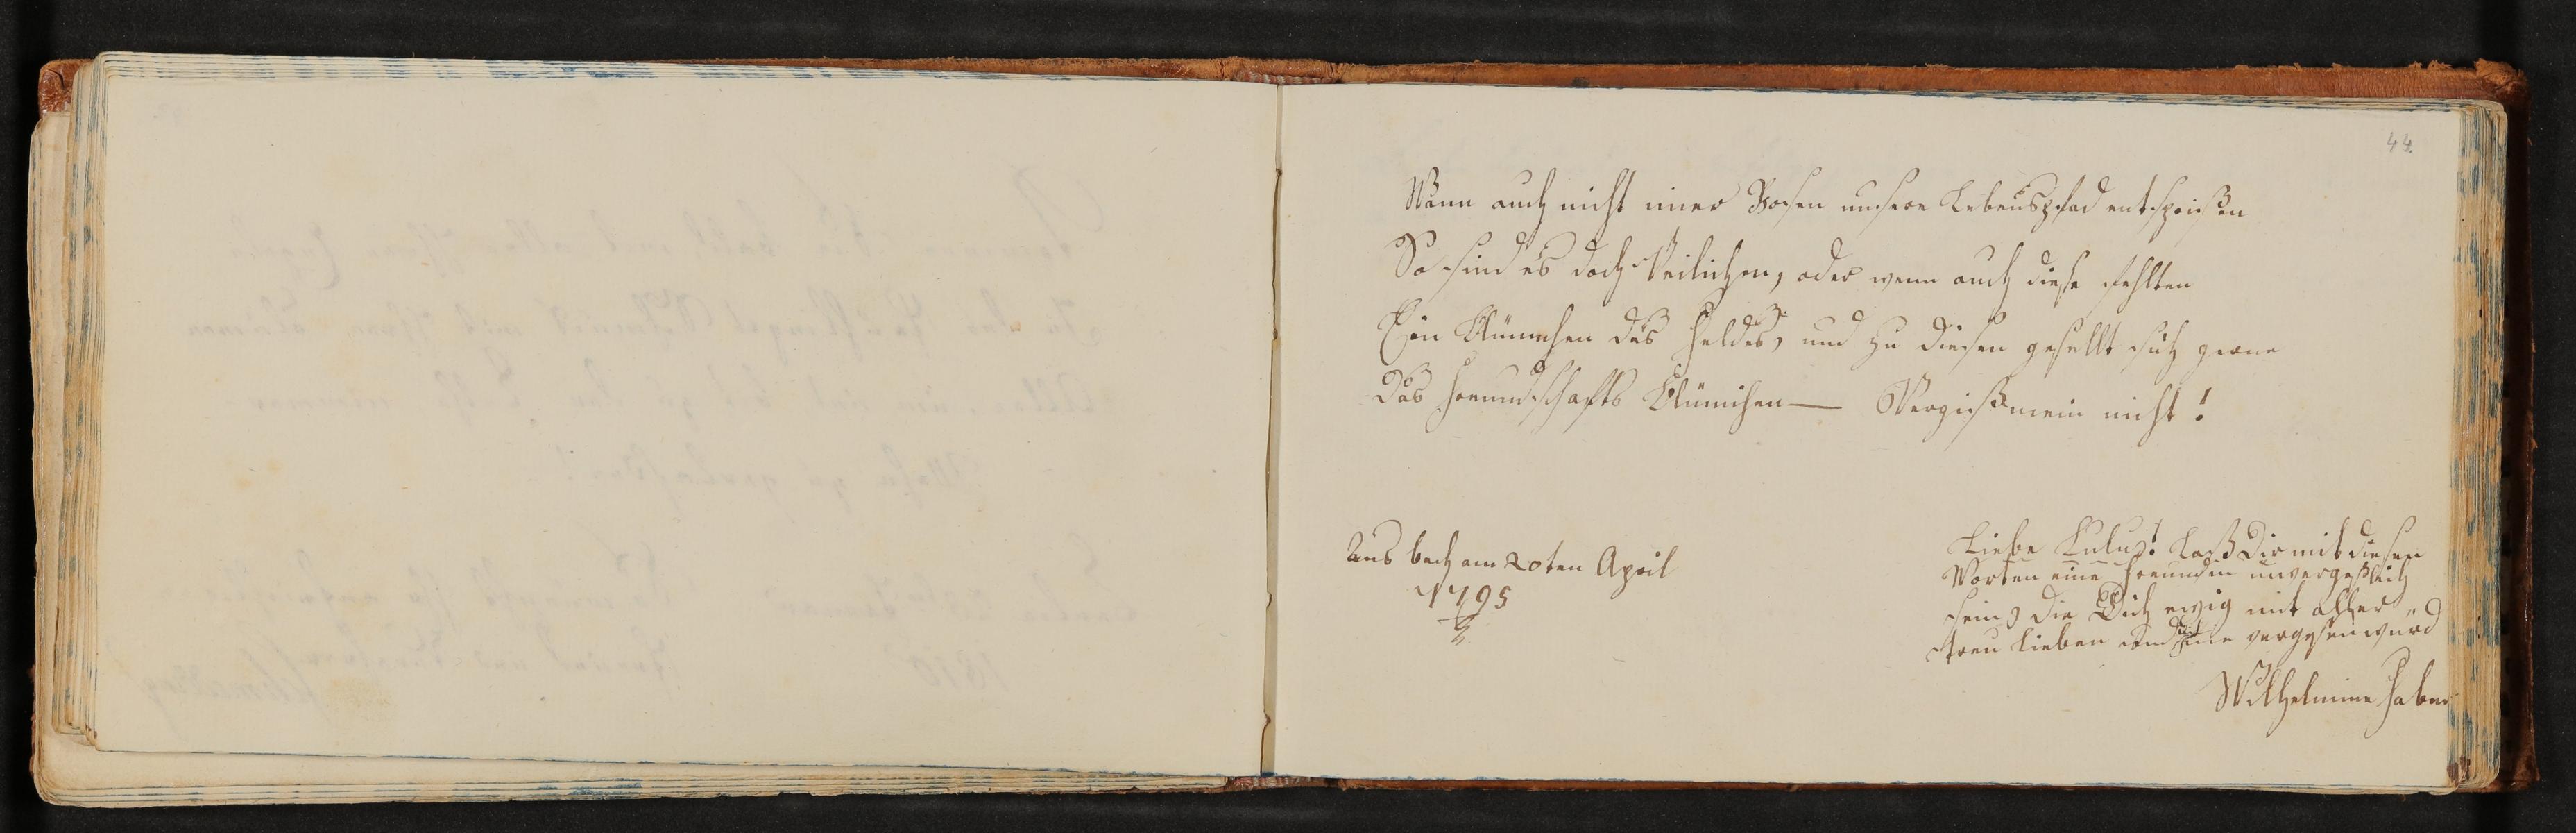 44.
Wänn auch nicht imer Rosen unsere Lebenspfad entsprießen
So sind es doch Veilichen, oder wenn auch diese fehlten
Ein Blümchen des Feldes, und zu diesen gesellt sich gerne
das Freundschafts Blümchen — Vergießmein nicht!
Ansbach am 20ten April
1795
Liebe Lulu! Laß Dir mit diesen
Worten eine Freundin unvergeßlich
sein, die Dich ewig mit aller
treu Lieben und Dich nie vergesen würd
Wilhelmine